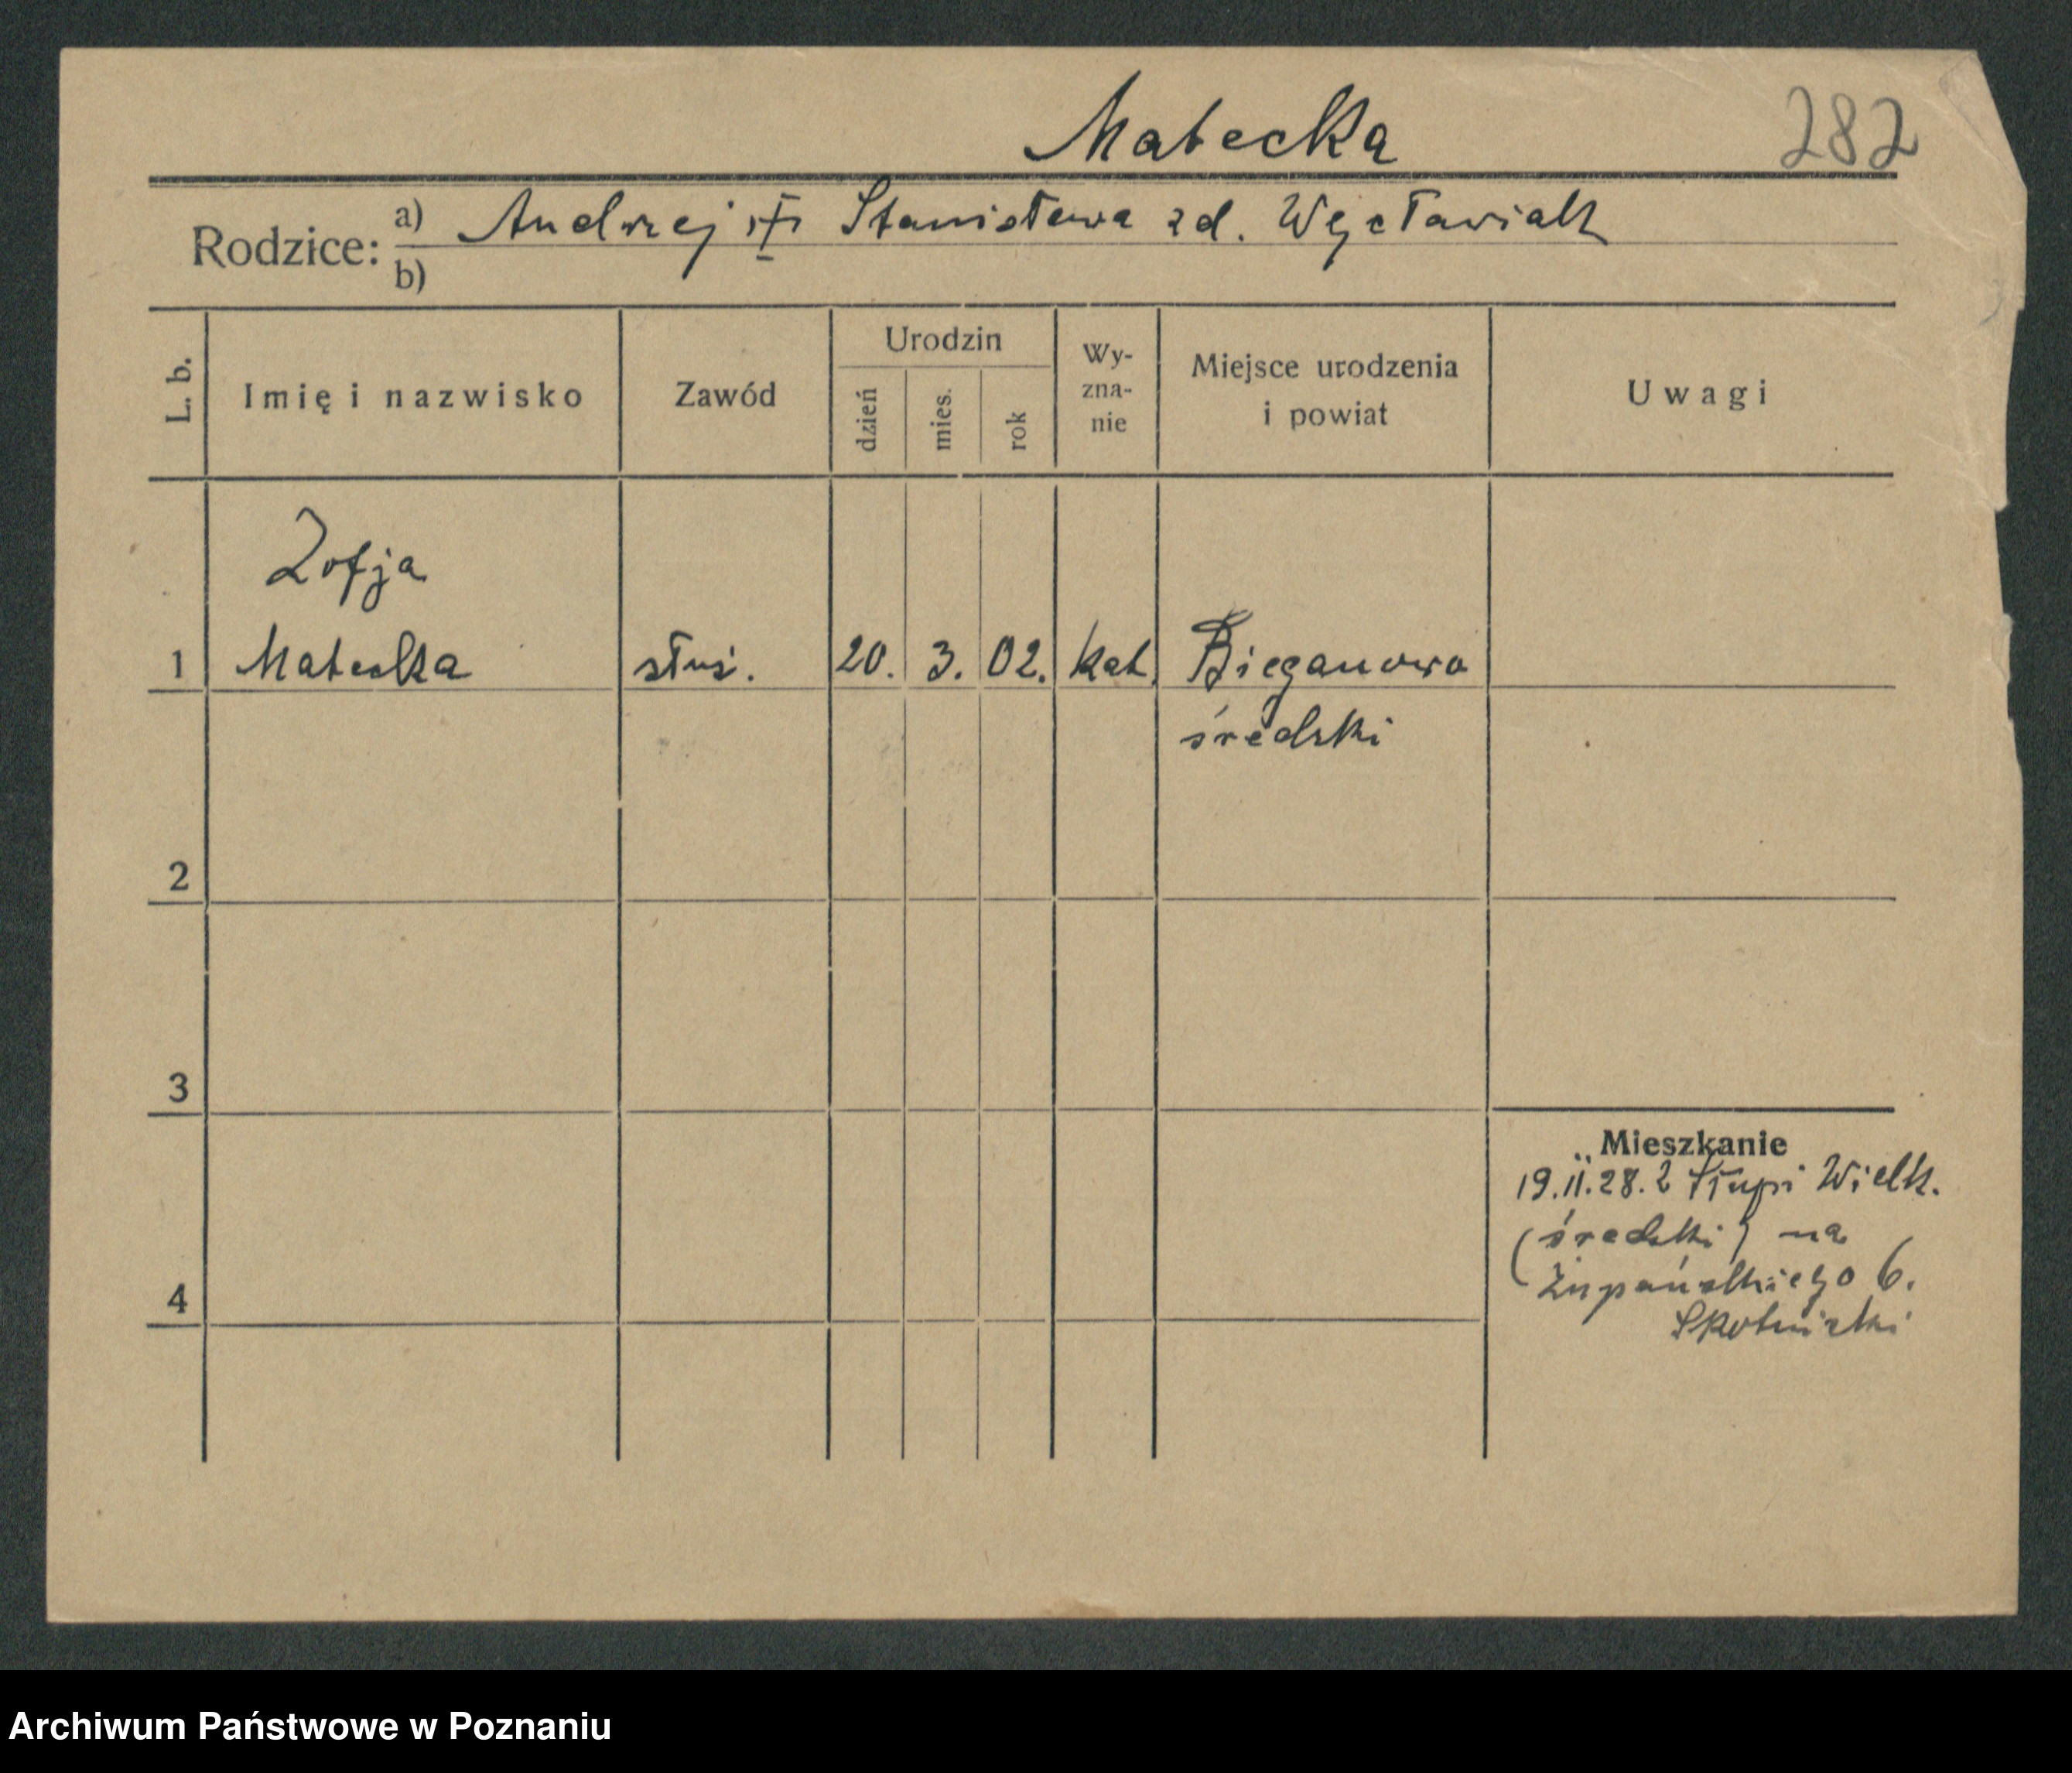 Małecka 282
Rodzice: a) Andrzej i Stanisława zd. Węcławiak
b)
L. b. Imię i nazwisko Zawód Urodzin dzień mies. rok Wyznanie Miejsce urodzenia i powiat Uwagi
Zofja
1 Małecka służ. 20. 3. 02. kat. Bieganowo
średzki
2
3
Mieszkanie
19.11.28. z Słupi Wielk.
(średzki) na
4 Żupańskiego 6.
Archiwum Państwowe w Poznaniu